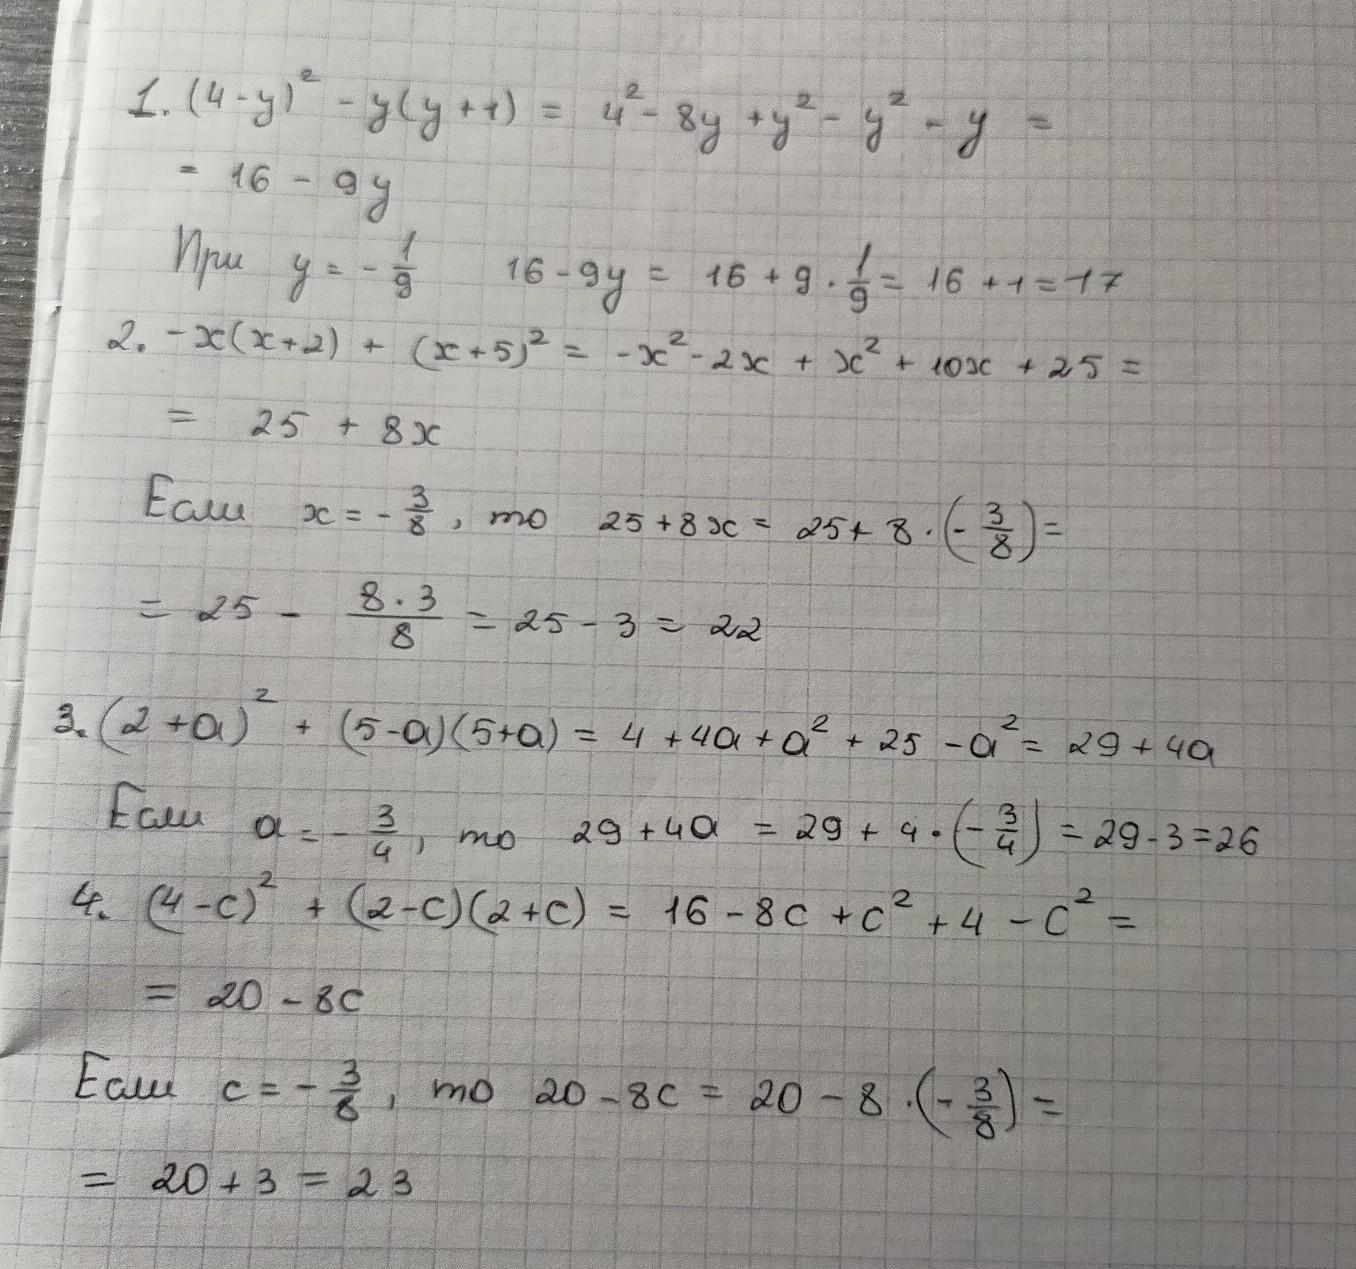 1. (4-y)² - y(y+1) = 4² - 8y + y² - y² - y =
= 16 - 9y
При y = -1/9 16 - 9y = 16 + 9 · 1/9 = 16 + 1 = 17
2. -x(x+2) + (x+5)² = -x² - 2x + x² + 10x + 25 =
= 25 + 8x
Если x = -3/8, то 25 + 8x = 25 + 8 · (-3/8) =
= 25 - 8·3/8 = 25 - 3 = 22
3. (2+a)² + (5-a)(5+a) = 4 + 4a + a² + 25 - a² = 29 + 4a
Если a = -3/4, то 29 + 4a = 29 + 4 · (-3/4) = 29 - 3 = 26
4. (4-c)² + (2-c)(2+c) = 16 - 8c + c² + 4 - c² =
= 20 - 8c
Если c = -3/8, то 20 - 8c = 20 - 8 · (-3/8) =
= 20 + 3 = 23